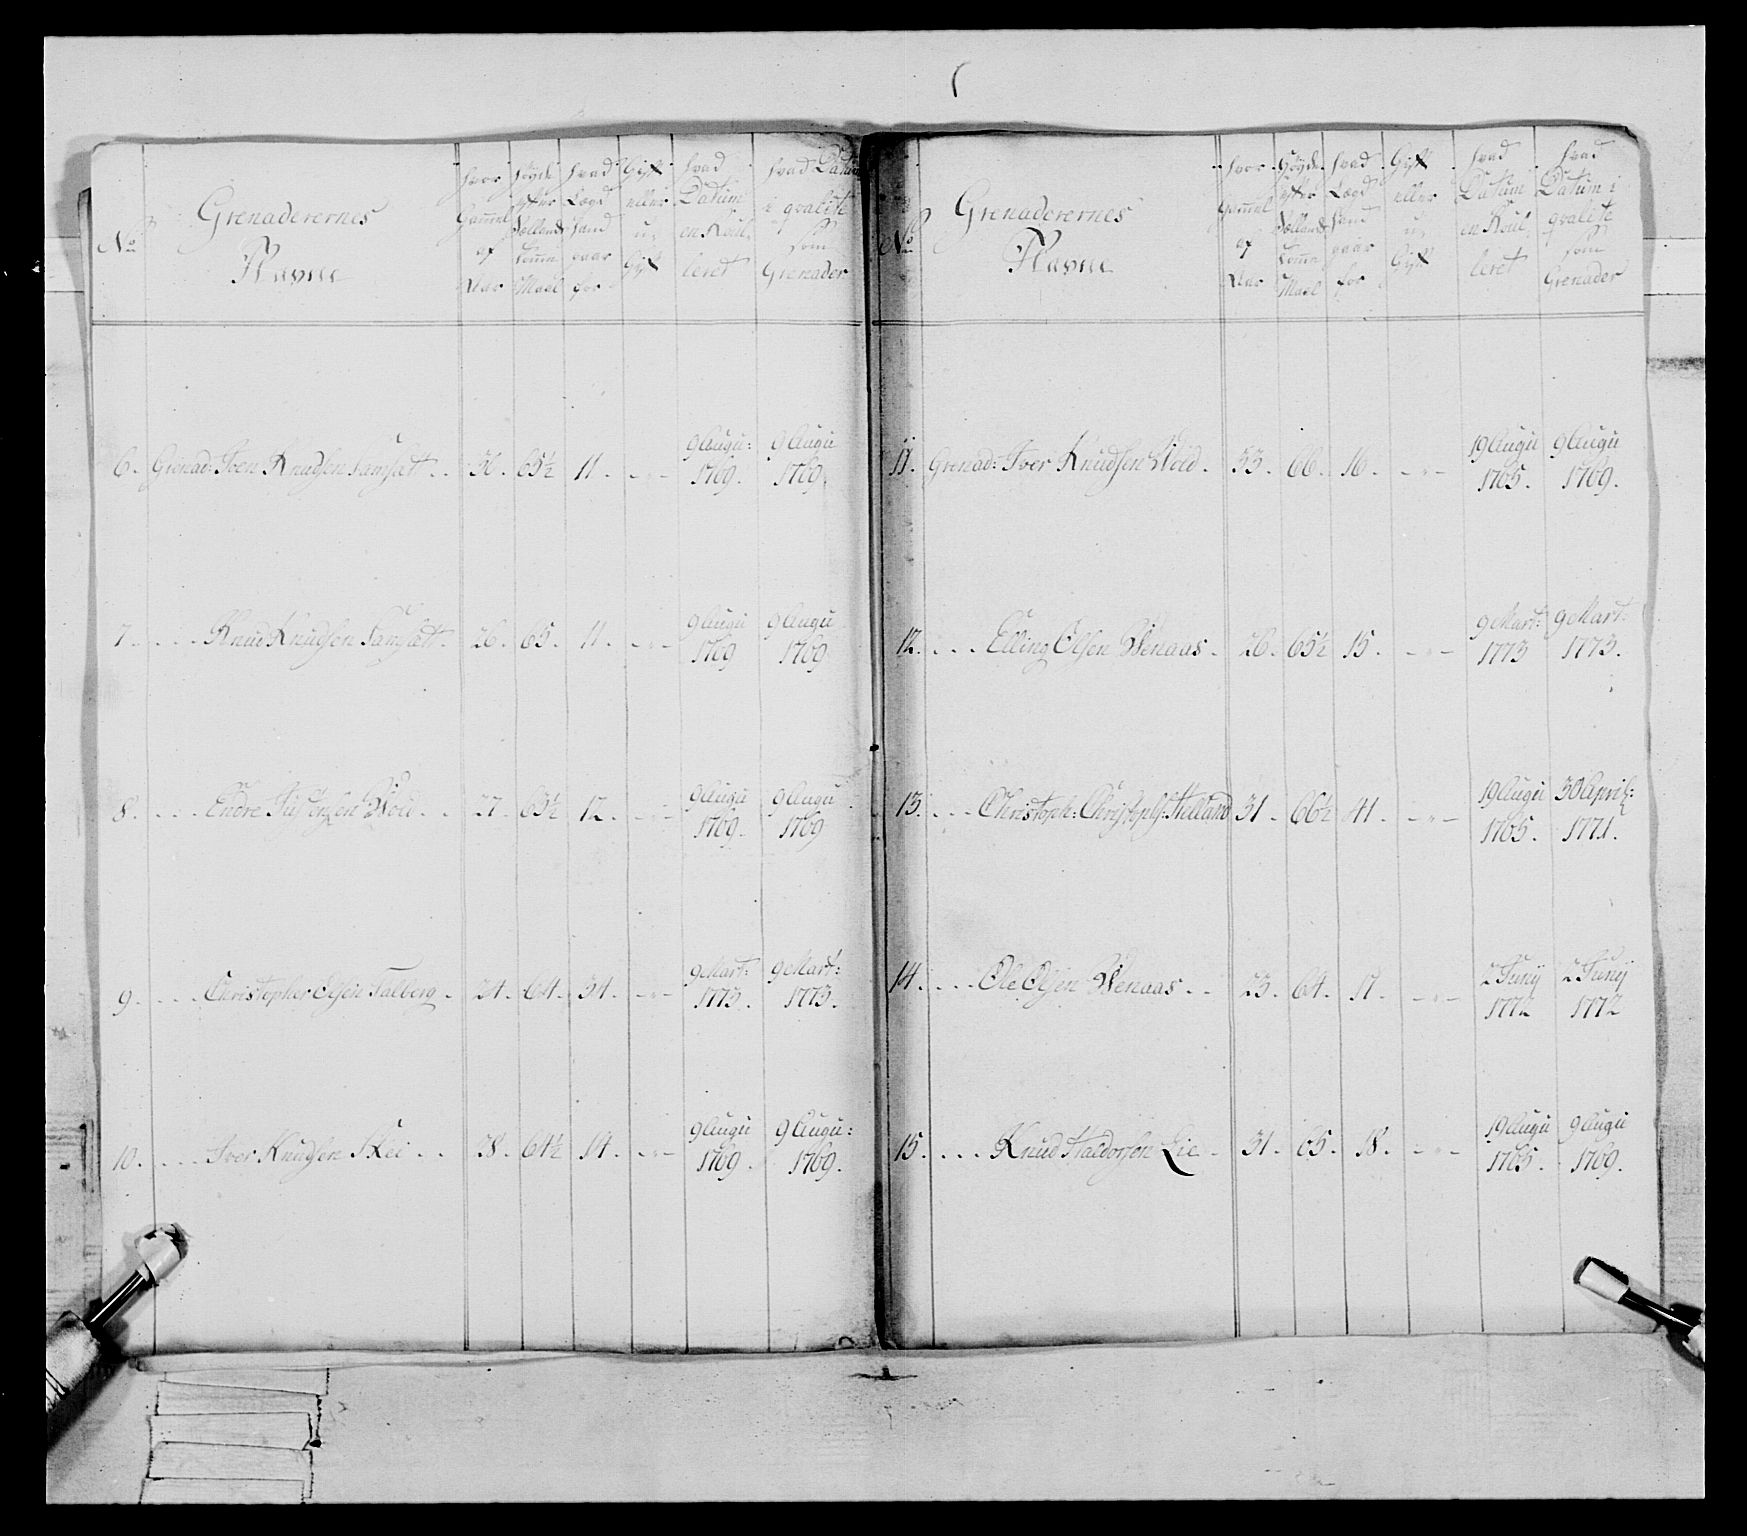 No
Grenaderernes
Navne
hvor Gammel af Alar
Höyde efter Sællands Tomme Maal
hvad Lægd hand gaar for
Gift eller u, Gift
hvad Datum en Roul, leret
hvad Datum i qvalite som Grenader
6. Grenad: Iven Knudsen Samsætt. . 36. 65½ 11. - „ - 9 Augu: 1769. 9 Augu 1769.
7. . . . . Knud Knudsen Samsætt. 26. 65. 11. - „ - 9 Augu 1769 9 Augu 1769
8. . . . . Endre Wold. . 27. 65½ 12. - „ - 9 Augu 1769. 9 Augu 1769
9. . . . . Christopher Olsen Talberg. 24. 64. 34. - „ - 9 Mart: 1773. 9 Mart: 1773.
10. . . . . Iver Knudsen Skei . . 28. 64½ 14. - „ - 9 Augu 1769. 9 Augu: 1769.
No
Grenaderernes
Navne
hvor Gammel af Alar
Höyde efter Sællands Tomme Maal
hvad Lægd hand gaar for
Gift eller u, Gift
hvad Datum en Roul, leret
hvad Datum i qvalite som Grenader
11. Grenad: Iver Knudsen Wold. 33. 66. 16. - „ - 19 Augu 1765. 9 Augu 1769.
12. . . . Elling Olsen Wenaas. 26. 65½ 15. - „ - 9 Mart: 1773 9 Mart: 1773.
13. . . . Christoph: Christophs: Hilland 31. 66½ 41. - „ - 19 Augu 1765. 30 April: 1771.
14. . . . Ole Olsen Wenaas. . 23. 64. 17. - „ - 2 Junij 1772 2 Junij 1772
15. . . . . Knud Haldorsen Lie. 31. 65. 18. - „ - 19 Augu 1765. 9 Augu 1769.